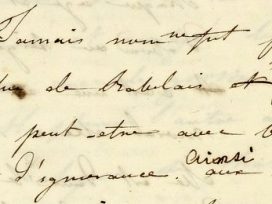 Jamais nom ne fut p
de Rabelais et
peut-etre avec
d'ignorance. ainsi aux